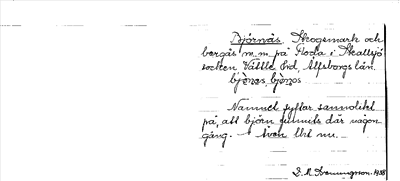 Björnås, Skogsmark och
bergås m.m på Floda i Skallsjö
socken Vättle Hd, Älfsborgs län.
bjö̀nas, bjö̀nos
Namnet syftar sannolikt
på, att björn funnits där någon
gång. — även tbl nu.
1938